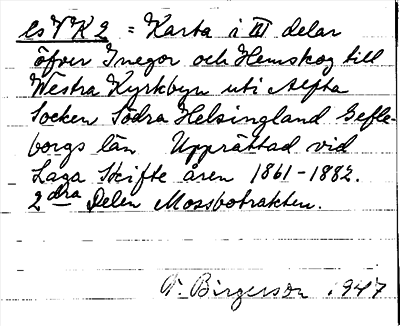 Cs V K 2 = Karta i III delar
öfver Inegor och Hemskog till
Westra Kyrkbyn uti Alfta
Socken Södra Helsingland Gefle-
borgs län Upprättad vid
Laga Skifte åren 1861-1882.
2 dra Delen Mossbotrakten.
Birgerson 1947